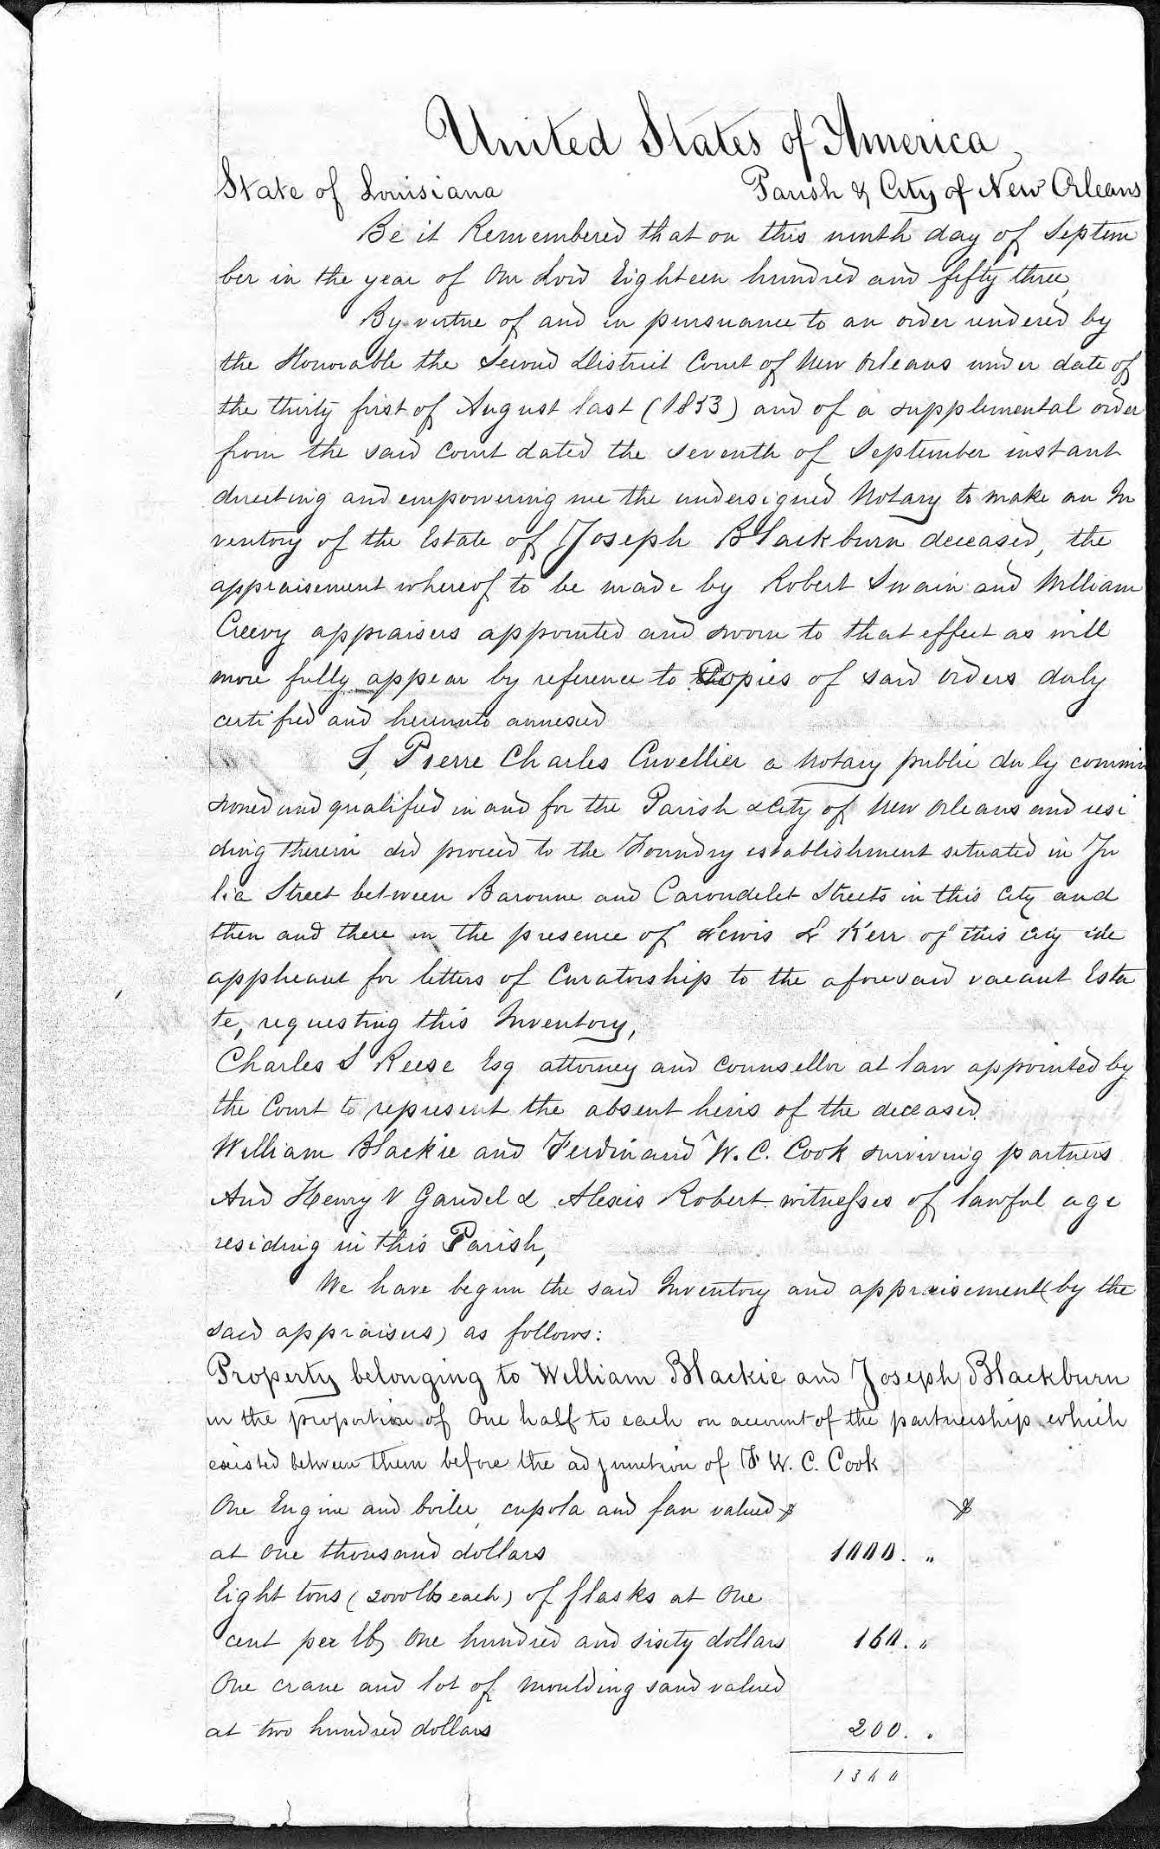 United States of America
State of Louisiana Parish & City of New Orleans
Be it Remembered that on this ninth day of Septem
ber in the year of Our Lord Eighteen hundred and fifty three
By virtue of and in pursuance to an order rendered by
the Honorable the Second District Court of New Orleans under date of
the thirty first of August last (1853) and of a supplemental order
from the said Court dated the seventh of September instant
directing and empowering me the undersigned Notary to make an In
ventory of the Estate of Joseph Blackburn deceased, the
appraisement whereof to be made by Robert Swain and William
Creevy appraisers appointed and sworn to that effect as will
more fully appear by reference to Copies of said orders duly
certified and hereunto annexed
I, Pierre Charles Cuvellier a Notary public duly commis
sioned and qualified in and for the Parish & City of New Orleans and resi
ding therein did proceed to the Foundry establishment situated in Ju
lia Street between Baronne and Carondelet Streets in this City and
then and there in the presence of Lewis L Kerr of this City the
applicant for letters of Curatorship to the aforesaid vacant Esta
te, requesting this Inventory,
Charles S Reese Esq attorney and counsellor at law appointed by
the Court to represent the absent heirs of the deceased
William Blackie and Ferdinand W. C. Cook surviving partners
And Henry V Gardel & Alexis Robert witnesses of lawful age
residing in this Parish,
We have begun the said Inventory and appraisement (by the
said appraisers) as follows:
Property belonging to William Blackie and Joseph Blackburn
in the proportion of One half to each on account of the partnership which
existed between them before the adjunction of F W. C. Cook
One Engine and boiler, cupola and fan valued $ $
at One thousand dollars 1000. "
Eight tons (2000 lbs each) of flasks at One
cent per lb, One hundred and sixty dollars 160. "
One crane and lot of moulding sand valued
at two hundred dollars 200. "
1360